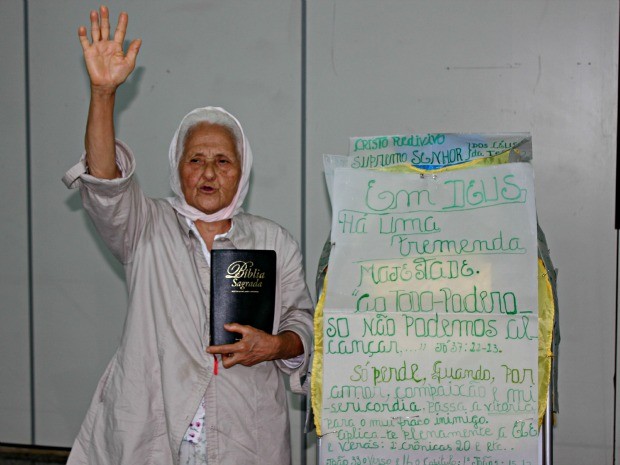 Bíblia
Sagrada
CRISTO REDIVIVO
SUPREMO SENHOR
DOS CÉUS
EM DEUS,
HÁ UMA
TREMENDA
MAJESTADE.
"AO TODO-PODERO-
SO NÃO PODEMOS AL
CANÇAR...." JÓ 37:22-23.
SÓ PERDE, QUANDO, POR
AMOR, COMPAIXÃO E MI-
SERICÓRDIA, PASSA A VITÓRIA
PARA O MUI FRACO INIMIGO.
APLICA-TE PLENAMENTE A ELE
E VERÁS: 2 CRÔNICAS 20 E